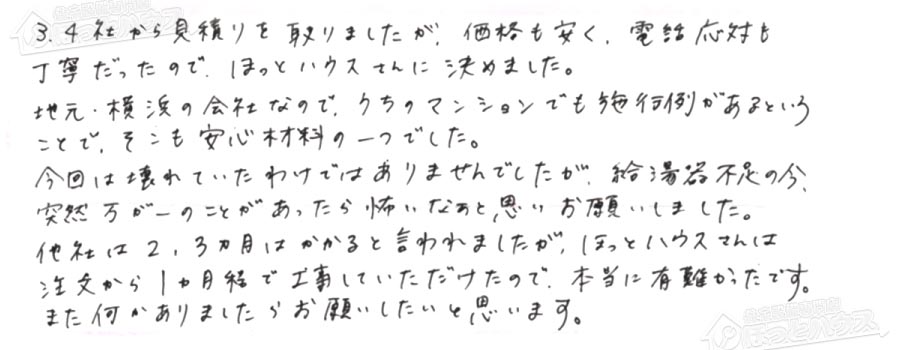 3.4社から見積りを取りましたが、価格も安く、電話応対も
丁寧だったので、ほっとハウスさんに決めました。
地元・横浜の会社なので、うちのマンションでも施行例があるという
ことで、そこも安心材料の一つでした。
今回は壊れていたわけではありませんでしたが、給湯器不足の今、
突然万が一のことがあったら怖いなぁと思いお願いしました。
他社は2,3カ月はかかると言われましたが、ほっとハウスさんは
注文から1カ月程で工事していただけたので、本当に有難かったです。
また何かありましたらお願いしたいと思います。
ほっとハウス